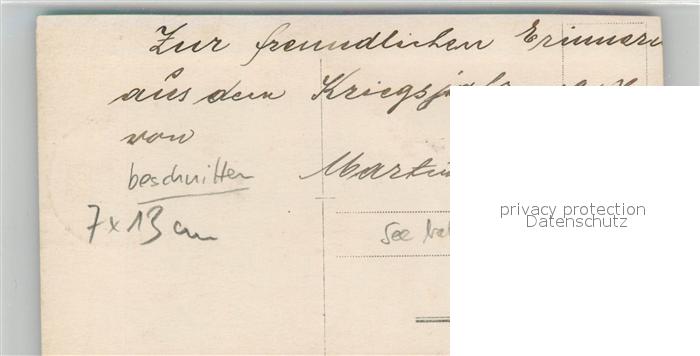 Zur freundlichen Erinneru
aus dem Kriegsja
von
Martin
beschnitten
7 x 13 cm
See
privacy protection
Datenschutz